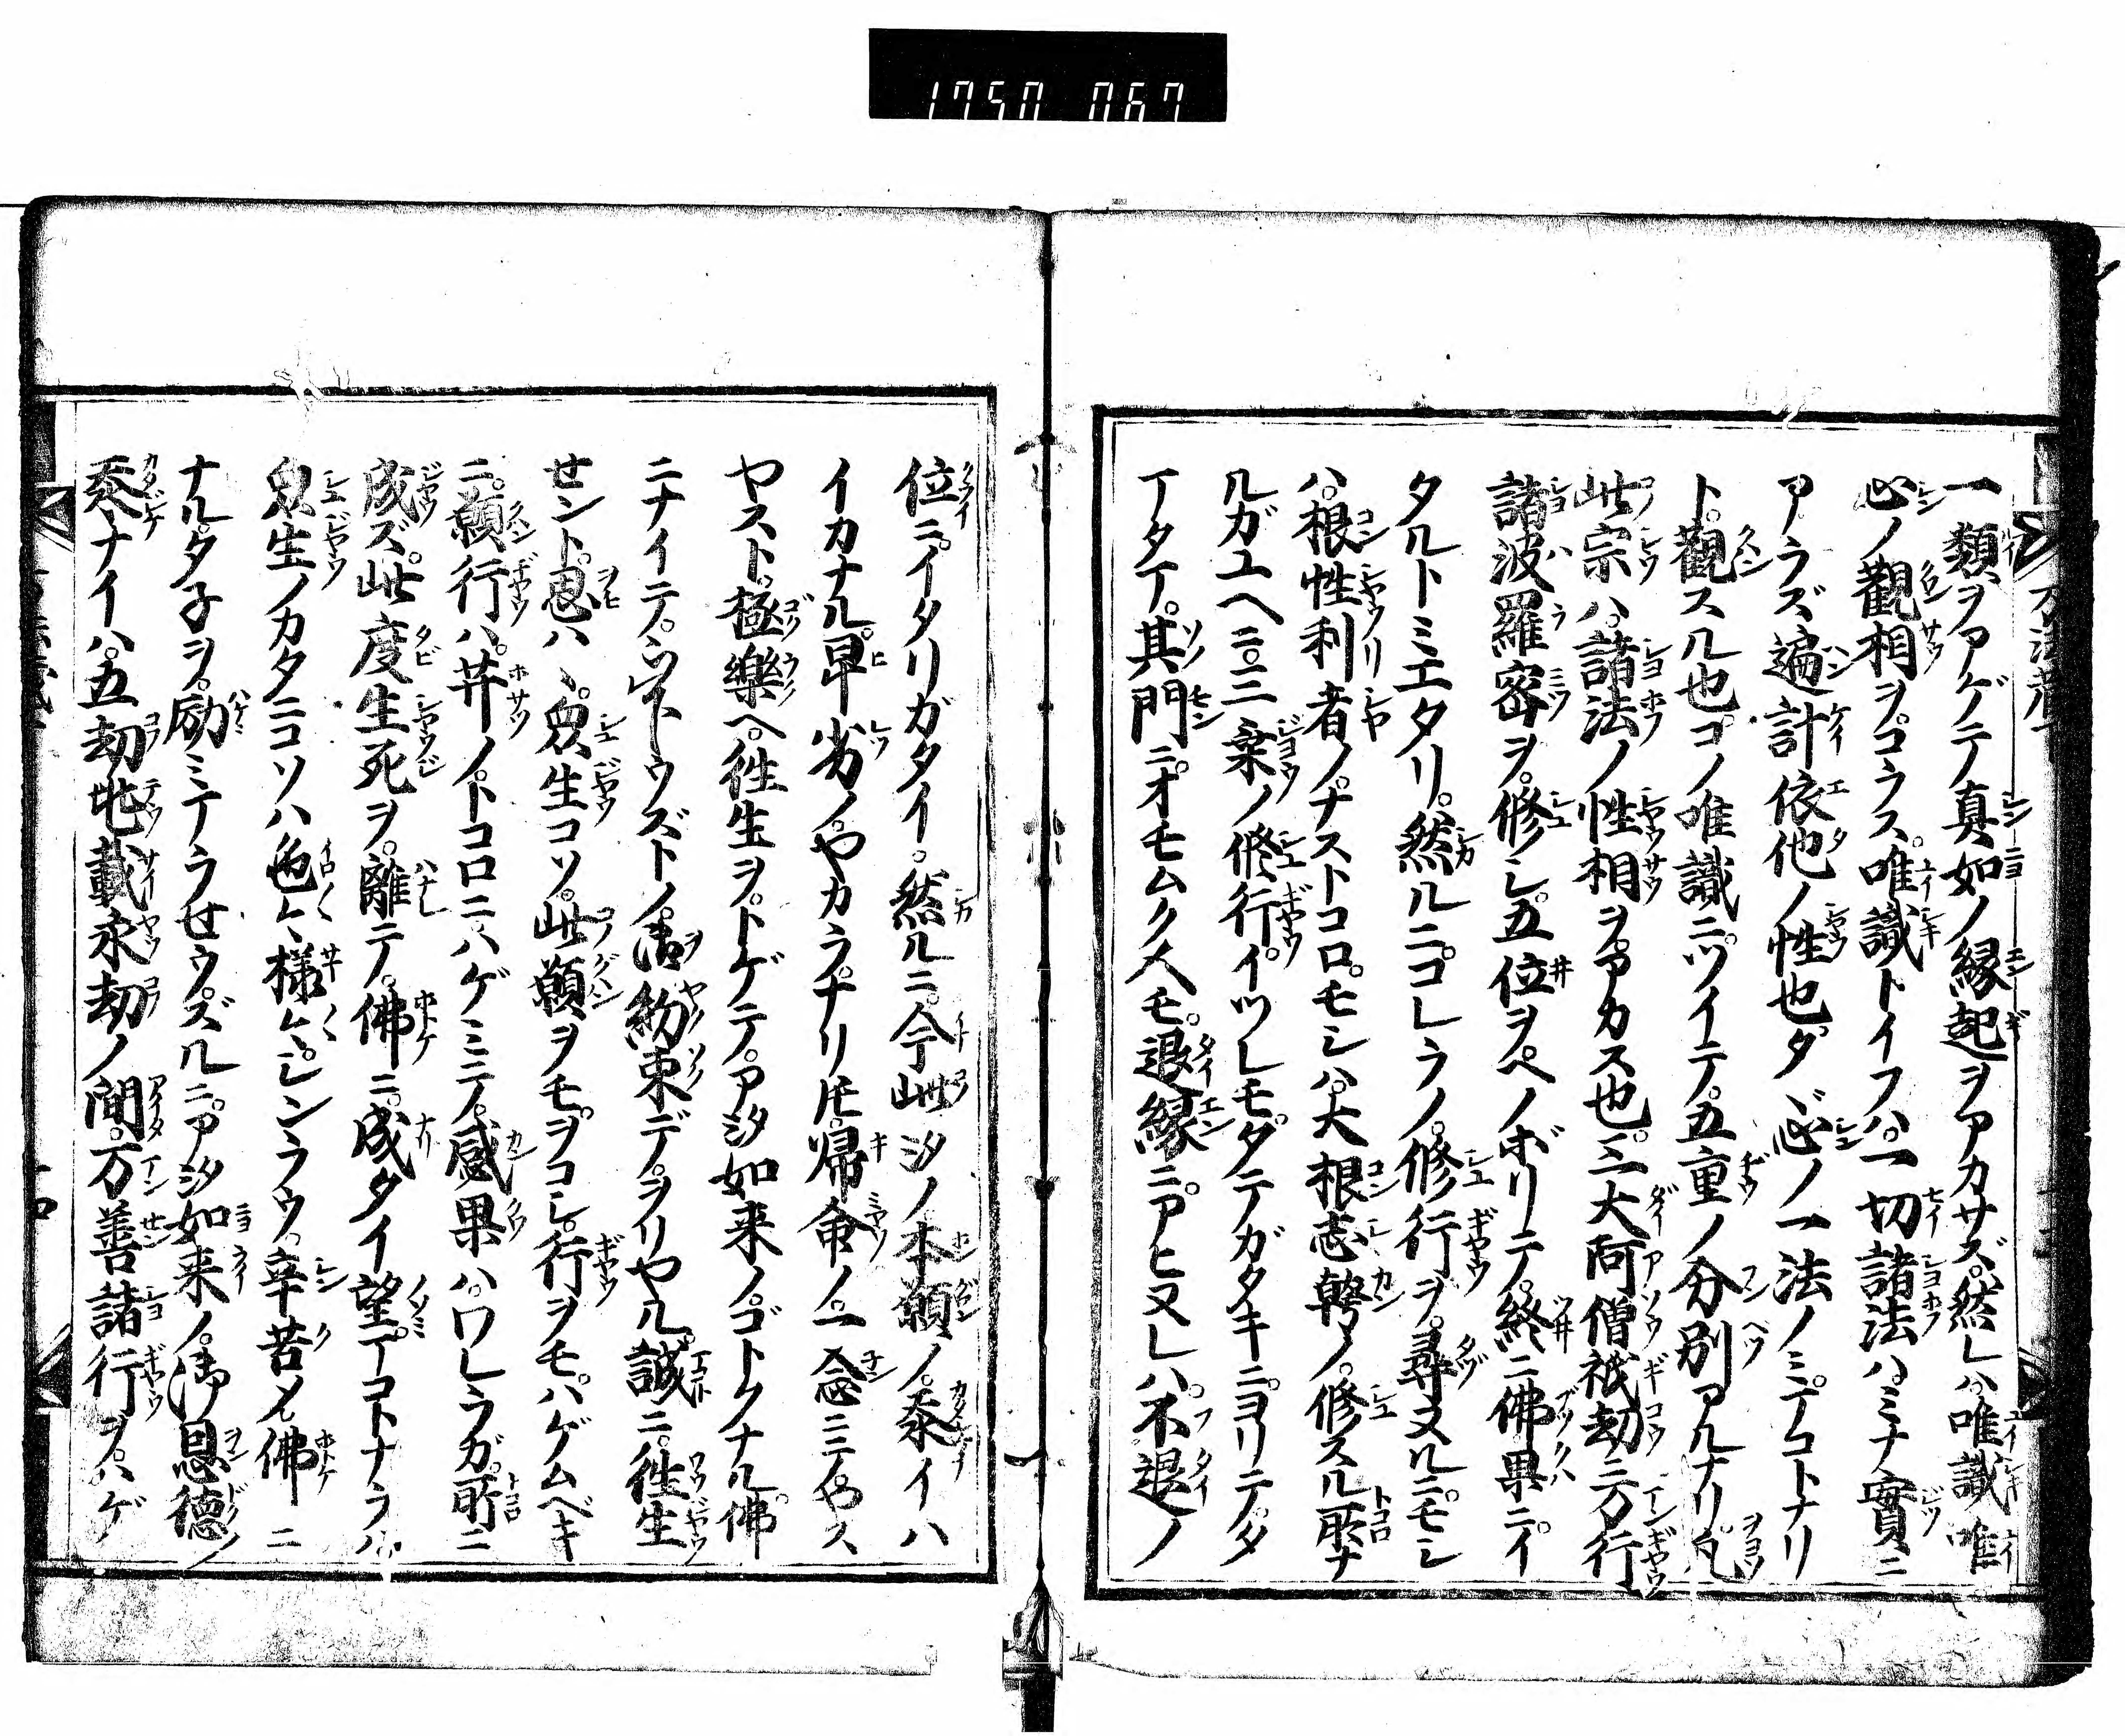 1750 067
一類ヲアゲテ真如ノ縁起ヲアカサズ。然レハ唯識唯
心ノ觀相ヲコラス。唯識トイフハ。一切諸法ハミナ實ニ
アラズ遍計依他ノ性也タヾ心ノ一法ノミテコトナリ
ト。觀スル也。コノ唯識ニツイテ。五重ノ分別アルナリ。凡
此宗ハ。諸法ノ性相ヲアカス也。三大阿僧祇劫ニ万行
諸波羅密ヲ。修シ。五位ヲヘノボリテ。終ニ佛果ニイ
タルトミエタリ。然ルニコレラノ。修行ヲ。尋ヌルニモシ
ハ。根性利者ノ。ナストコロ。モシハ。大根志幹ノ。修スル所ナ
ルガユヘニ。三乗ノ修行。イツレモ。タテガタキニヨリテ。タ
マタマ。其門ニオモムク人モ。退縁ニアヒヌレハ。不退ノ
位ニ。イタリガタイ。然ルニ。今此ミダノ本願ノ。忝イハ
イカナル。卑劣ノヤカラナリ𪜈。帰命ノ一念ニテ。ヤス
ヤスト。極樂ヘ。往生ヲ。トゲテ。アミダ如来ノ。ゴトクナル。佛
ニナイテ。ツトウズトノ。御約束デ。ヲリヤル。誠ニ。往生
せント。思ハヽ。衆生コソ。此願ヲモ。ヲコシ。行ヲモ。ハゲムベキ
ニ。願行ハ。菩薩ノ。トコロニハゲミニテ。感果ハ。ワレラガ。所ニ
成ズ。此度生死ヲ。離テ。佛ニ。成タイ望マコトナラハ
衆生ノカタニコソハ色々様々。シンラウ。辛苦メ佛ニ
ナルタ子ヲ。励ミテラせウズルニ。アミダ如来ノ。御恩德ノ
忝ナイハ。五劫兆載永劫ノ間。万善諸行ヲ。ハゲ